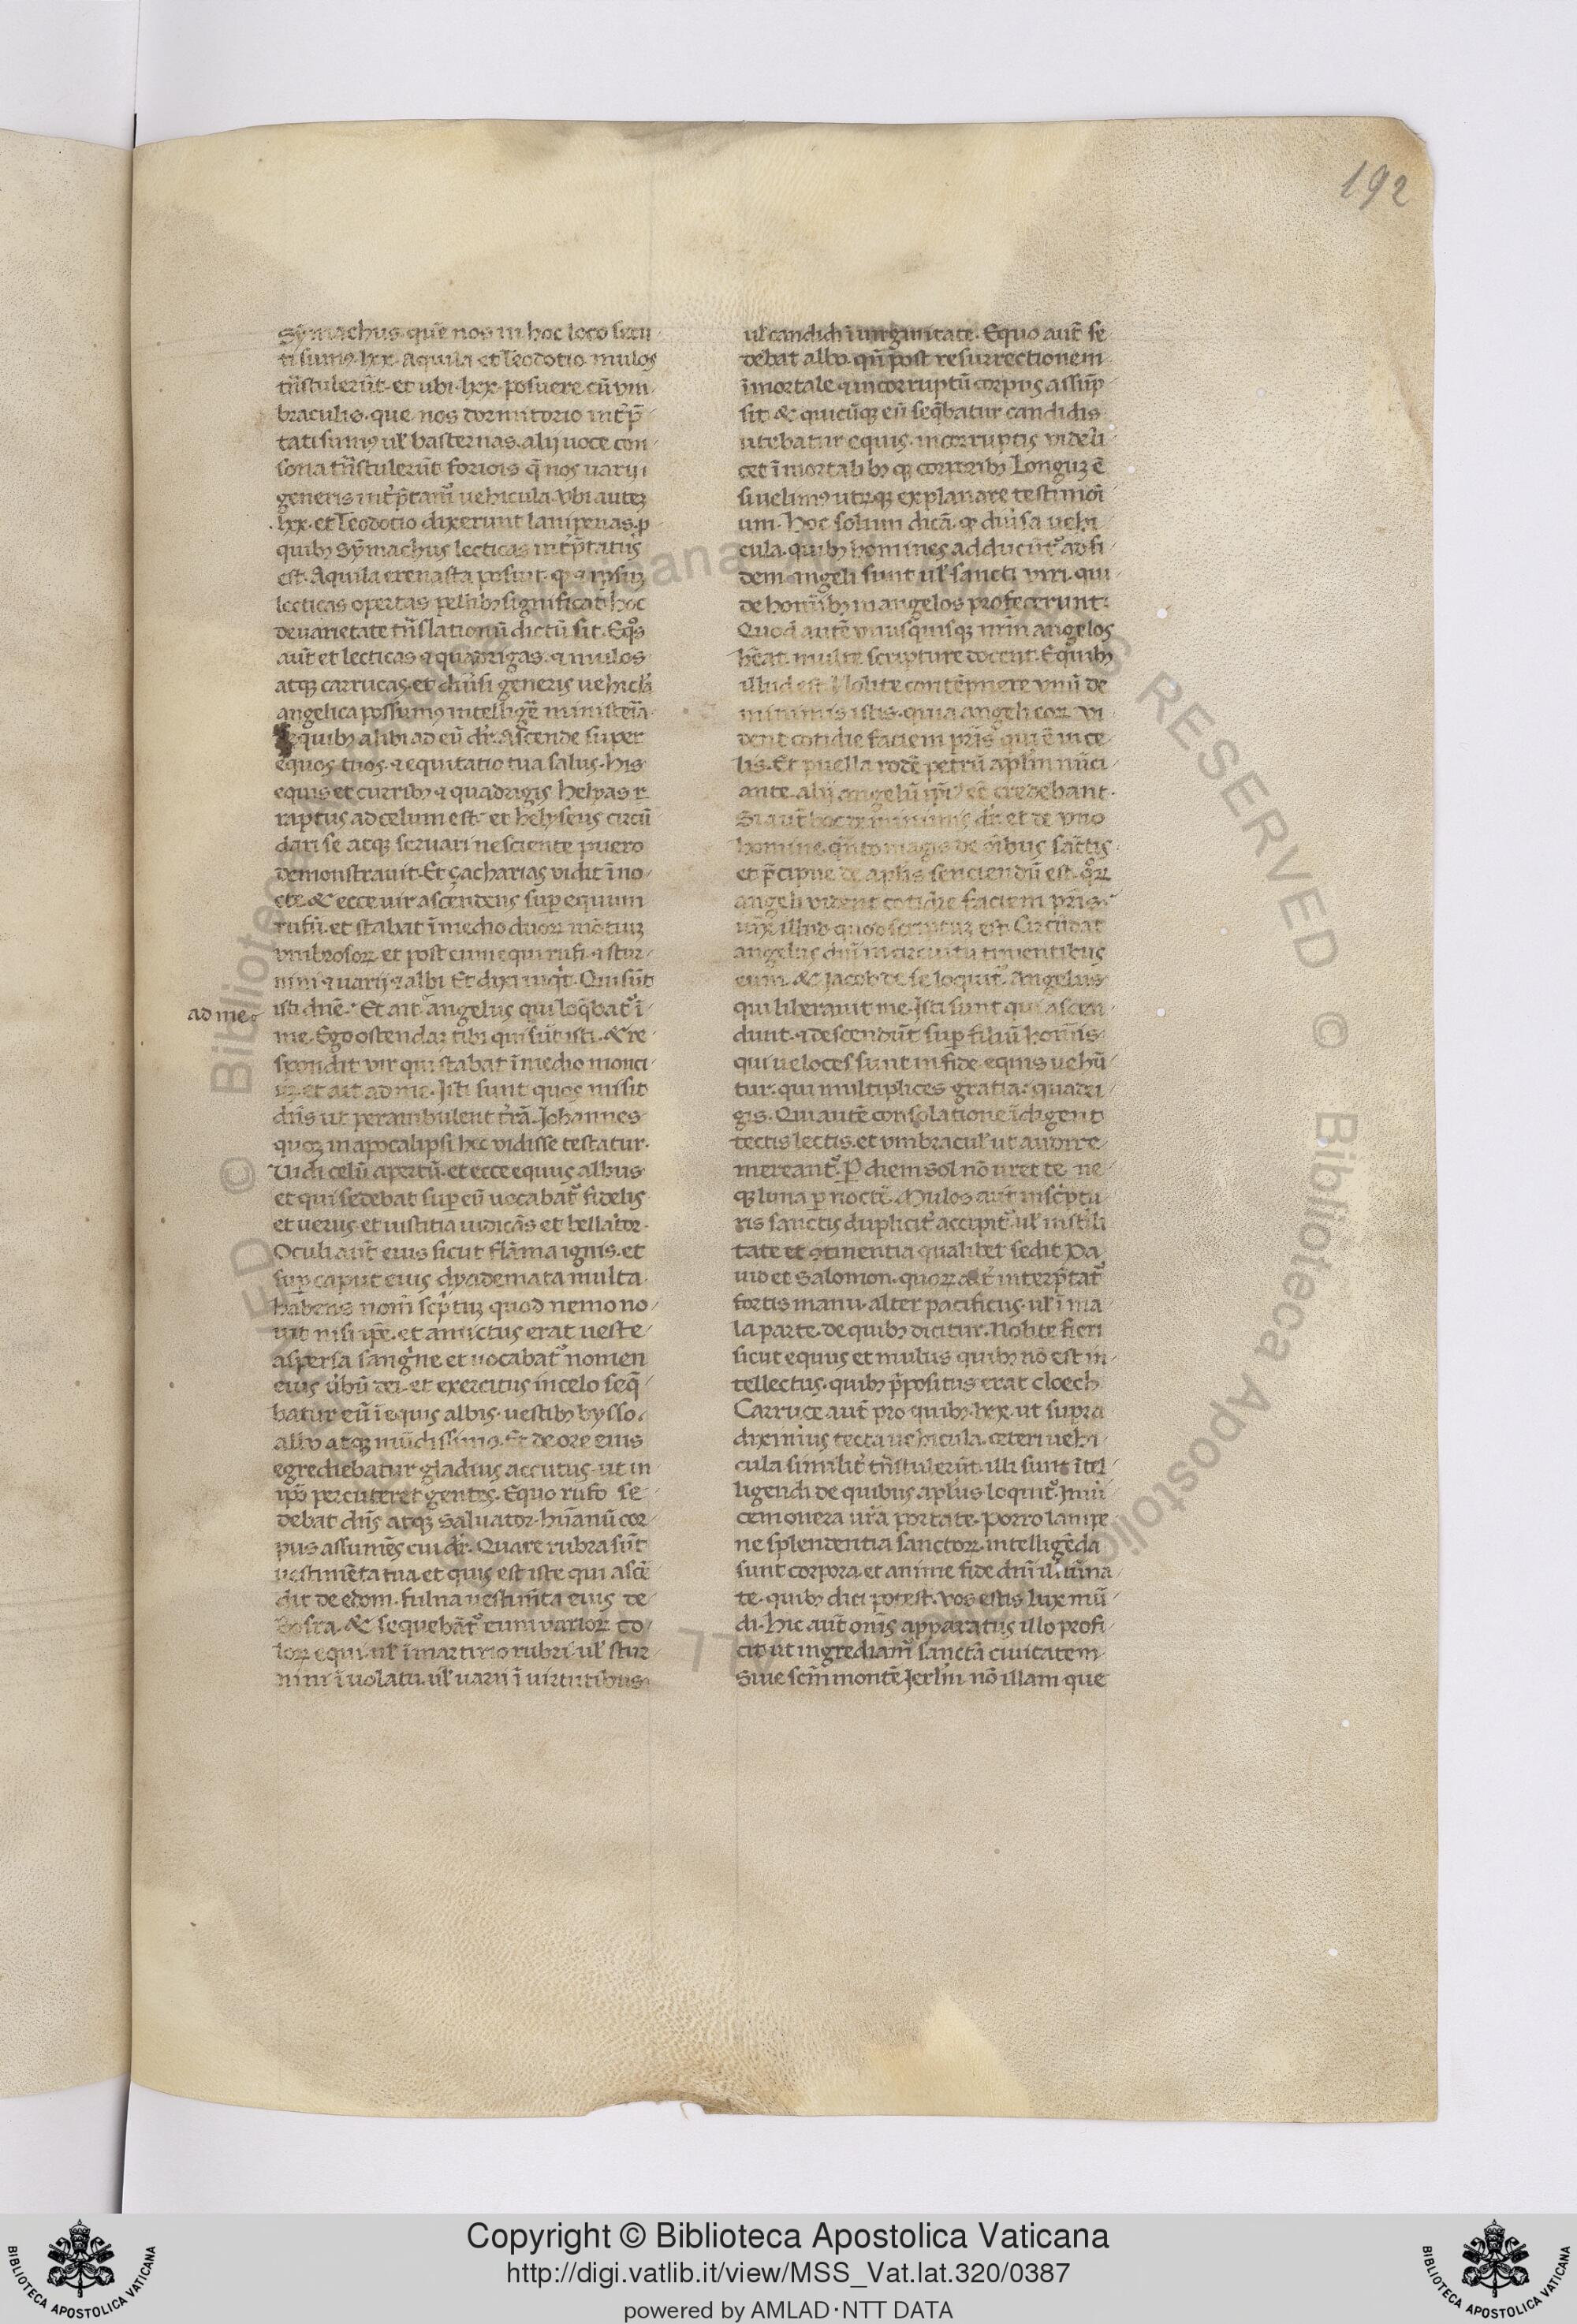 192
Symachus que nos in hoc loco secu
ti sumꝰ lxx. Aquila et Teodotio mulos
tn̄stulerūt. et ubi lxx posuere cū vm
braculis. que nos dormitorio int̄p̄
tati sumꝰ ul̄ basternas. alij uoce con
sona tn̄stulerūt foriois q̄ nos uarij
generis int̄p̄tam̄ uehicula. vbi autez
lxx. et Teodotio dixerunt lampenas. p
quibꝫ Sȳmachus lecticas int̄p̄tatus
est. Aquila
lecticas opertas pellibꝫ significat. hoc
de uarietate tn̄slationū dictū sit. Eqͦs
aut̄ et lecticas ⁊ quadrigas. ⁊ mulos
atqꝫ carrucas. et diūsi generis uehicla
angelica possumꝰ intelligē̄ ministeria
quibꝫ alibi ad eū dr̄. Ascende super
equos tuos. ⁊ equitatio tua salus. his
equis et curribꝫ ⁊ quadrigis helyas
raptus ad celum est. et helyseus circū
dari se atqꝫ seruari nesciente puero
demonstrauit. Et çacharias vidit ī no
cte. & ecce uir ascendens sup equum
rufū. et stabat ī medio duorꝝ mōtiuꝫ
vmbrosorꝝ. et post eum equi rufi. ⁊ stur
nini ⁊ uarij ⁊ albi. Et dixi inqͥt. Qui sūt
ad me
isti dn̄e. Et ait angelus qui loq̄bat̄ ī
me. Ego ostendaꝫ tibi qui sūt isti. & re
spondit vir qui stabat ī medio monti
uꝫ. et ait ad me. Isti sunt quos misit
dn̄s ut perambulent t̄rā. Johannes
quoꝫ in apocalipsi hec vidisse testatur.
Vidi celū apertū. et ecce equus albus
et qui sedebat sup eū uocabat̄ fidelis
et uerus et iustitia iudicās et bellator.
Oculi aut̄ eius sicut flāma ignis. et
sup caput eius dyademata multa
habens nom̄ sc̄ptuꝫ quod nemo no
uit nisi ip̄e. et amictus erat ueste
aspersa sangͥne et uocabat̄ nomen
eius v̄bū dei. et exercitus in celo seq̄
batur eū ī equis albis. uestibꝫ bysso
albo atqꝫ mūdissimo. Et de ore eius
egrediebatur gladius accutus. ut in
ip̄o percuteret gentes. Equo rufo se
debat dn̄s atqꝫ saluator. hūanū cor
pus assumēs cui dr̄. Quare rubra sūt
uestimēta tua. et quis est iste qui ascē
dit de edom. fulua uestim̄ta eius de
bosra. & sequebāt̄ eum variorꝝ co
lorꝝ equi. ul̄ ī martirio rubri. ul̄ stur
nini ī uolatu. ul̄ uarii ī uirtutibus
ul̄ candidi ī uirginitate. Equo aut̄ se
debat albo. qn̄ post resurrectionem
īmortale ⁊ incorruptū corpus assūp
sit. & quicūqꝫ eū seq̄batur candidis
utebatur equis. incorruptis videli
cet īmortalibꝫ qꝫ corporibꝫ. Longuꝫ ē
si uelimꝰ utrūqꝫ explanare testimoī
um. Hoc solum dicā. qꝫ diūsa uehi
cula. quibꝫ homines adducūt̄ ad fi
dem angeli sunt ul̄ sancti viri. qui
de hom̄ibꝫ in angelos profecerunt:
Quod autē vnusquisqꝫ nr̄m angelos
hēat. multe scripture docent. E quibꝫ
illud est. Nolite contēpnere vnū de
minimis istis. quia angeli eoꝝ vi
dent cotidie faciem pr̄is qui ē in ce
lis. Et puella rodē petrū ap̄lm nūci
ante. alij angelū ip̄i eē credebant.
Si aut̄ hoc de minimis dr̄. et de vno
homine. qn̄to magis de om̄ibus sāctis
et p̄cipue de ap̄lis senciendū est. qͦrꝝ
angeli vident cotidie faciem pr̄is.
vn̄ illud quod scriptuꝫ est. Circūdat
angelus dn̄i in circuitu timentibus
eum. & Jacob de se loquit̄. Angelus
qui liberauit me. Isti sunt qui ascen
dunt. ⁊ descendūt sup filiū hom̄is.
qui ueloces sunt in fide. equis uehū
tur. qui multiplices gratia. quadri
gis. Qui autē consolatione īdigent
tectis lectis. et vmbracul̄ ut audire
mereant̄. Per diem sol nō uret te ne
qꝫ luna p noctē. Mulos aut̄ in sc̄ptu
ris sanctis duplicit̄ accipit̄. ul̄ in st̄ili
tate et ꝯtinentia qualibet sedit Da
uid et Salomon. quorꝝ alt̄ interp̄tat̄
fortis manu. alter pacificus. ul̄ ī ma
la parte. de quibꝫ dicitur. Nolite fieri
sicut equus et mulus quibꝫ nō est in
tellectus. quibꝫ p̄positus erat cloech
Carruce aut̄ pro quibꝫ. lxx. ut supra
diximus tecta uehicula. ceteri uehi
cula similit̄ tn̄stulerūt. illi sunt ītel
ligendi de quibus ap̄lus loquit̄. Inui
cem onera ur̄a portate. Porro lampe
ne splendentia sanctorꝝ. intelligēda
sunt corpora. et anime fide dn̄i illūina
te. quibꝫ dici potest. Vos estis lux mū
di. Hic aut̄ om̄is apparatus illo profi
cit ut ingrediam̄ sanctā ciuitatem
Siue scm̄ montē Jerl̄m. nō illam que
Copyright © Biblioteca Apostolica Vaticana
http://digi.vatlib.it/view/MSS_Vat.lat.320/0387
powered by AMLAD·NTT DATA
BIBLIOTECA APOSTOLICA VATICANA
BIBLIOTECA APOSTOLICA VATICANA